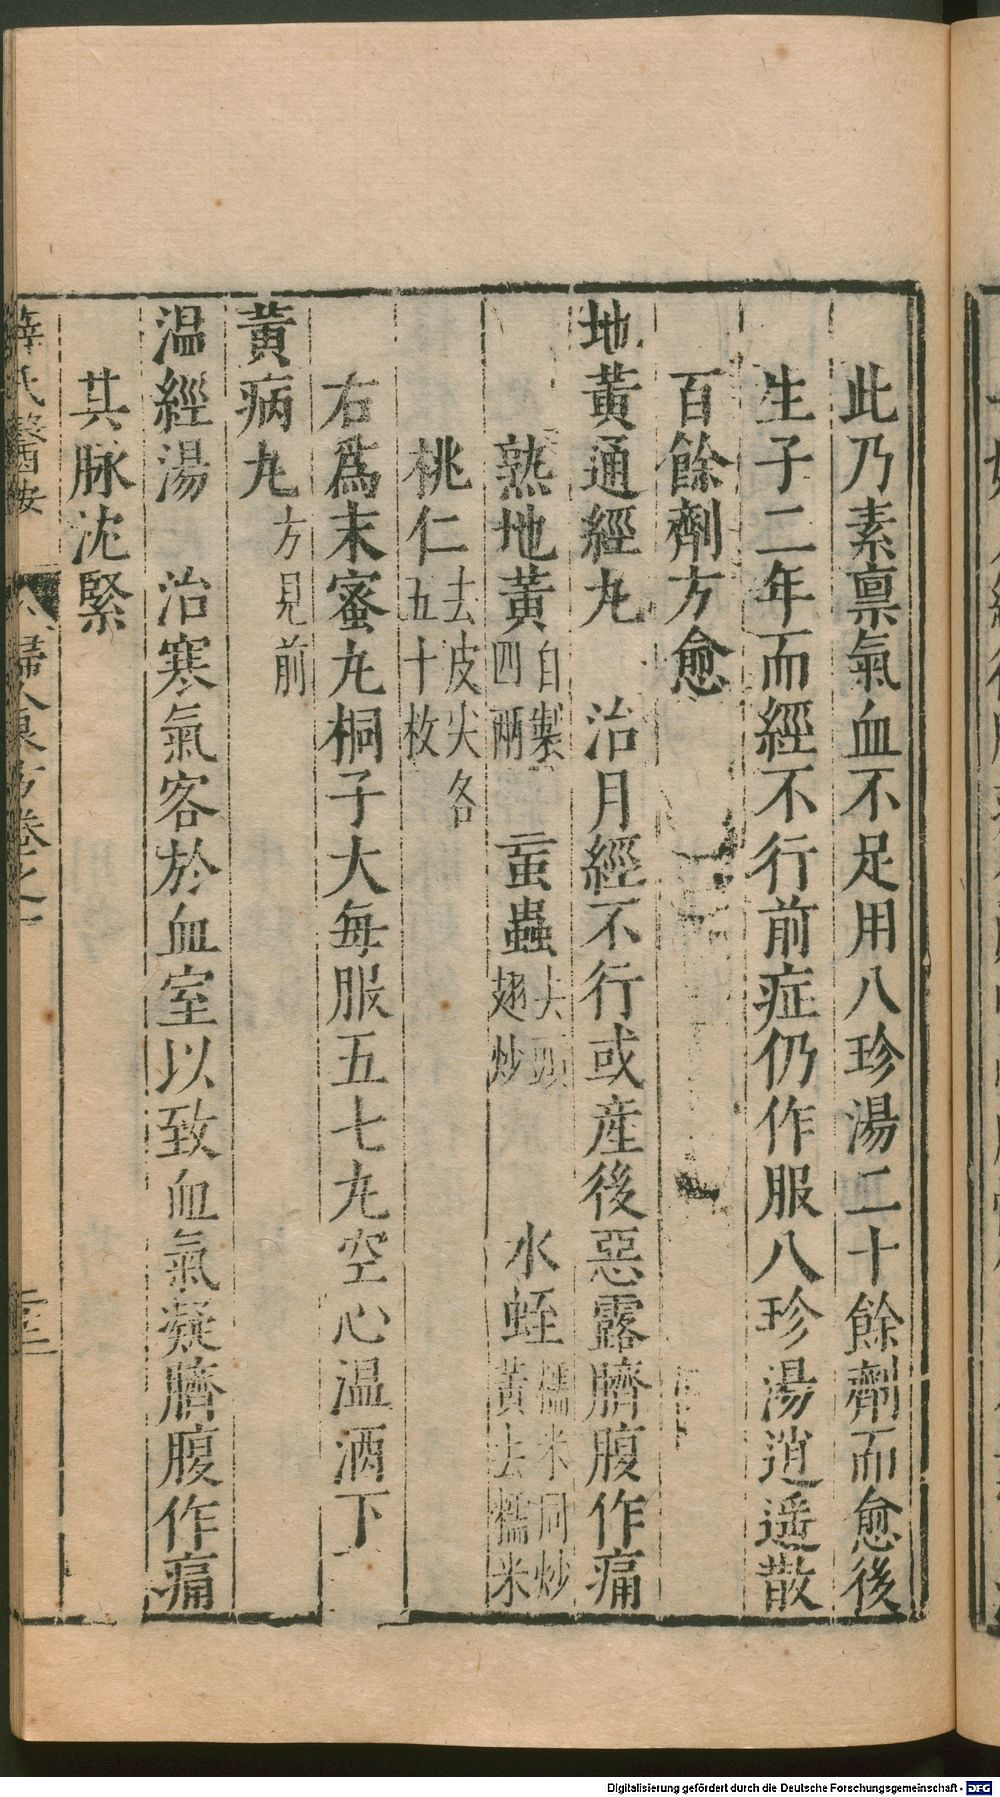 此乃素禀氣血不足用八珍湯二十餘劑而愈後
生子二年而經不行前症仍作服八珍湯逍遥散
百餘劑方愈
地黃通經丸　治月經不行或産後惡露臍腹作痛
熟地黃自製四兩　䖟蟲去頭翅炒　水蛭糯米同炒黃去糯米
桃仁去皮尖各五十枚
右爲末蜜丸桐子大每服五七丸空心温酒下
黃病丸方見前
温經湯　治寒氣客於血室以致血氣凝臍腹作痛
其脉沈緊
薛氏醫案　婦人良方卷之一
Digitalisierung gefördert durch die Deutsche Forschungsgemeinschaft - DFG